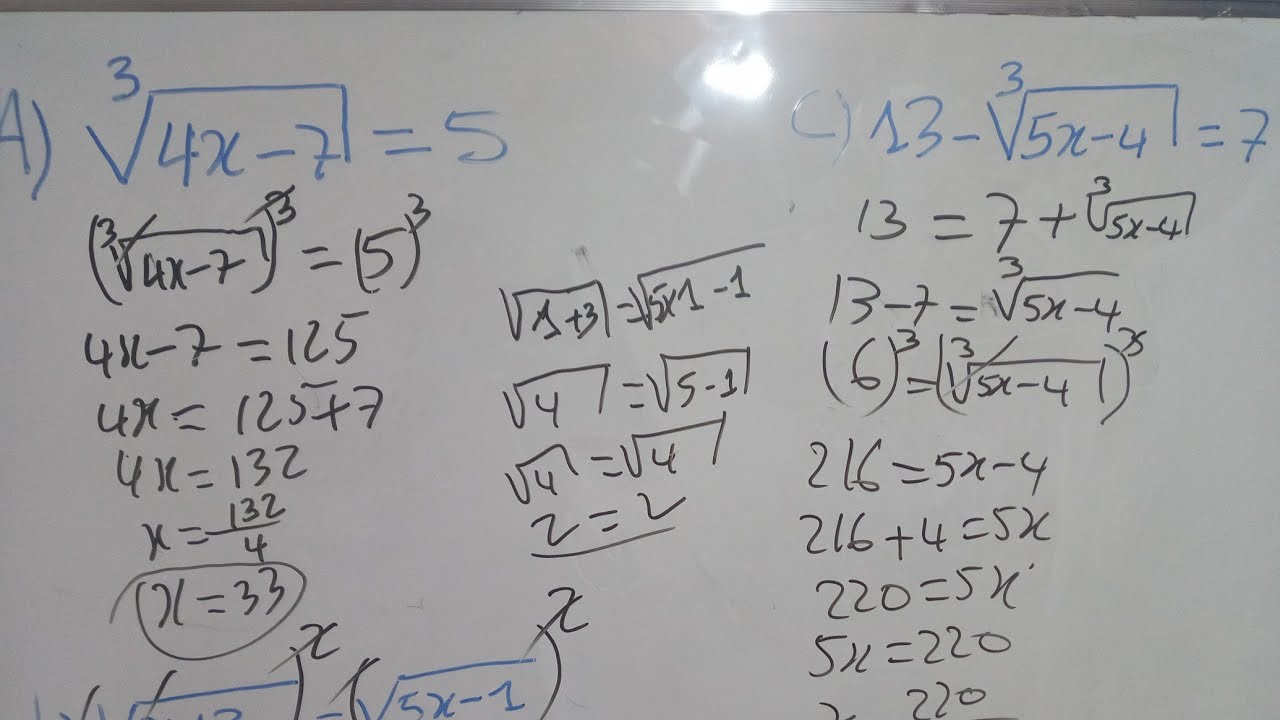 A) ∛(4x-7) = 5
(∛(4x-7))³ = (5)³
4x-7 = 125
4x = 125+7
4x = 132
x = 132/4
x = 33
√(1+3) = √(5x1-1)
√4 = √(5-1)
√4 = √4
2 = 2
= (√(5x-1))²
C) 13 - ∛(5x-4) = 7
13 = 7 + ∛(5x-4)
13-7 = ∛(5x-4)
(6)³ = (∛(5x-4))³
216 = 5x-4
216+4 = 5x
220 = 5x
5x = 220
220